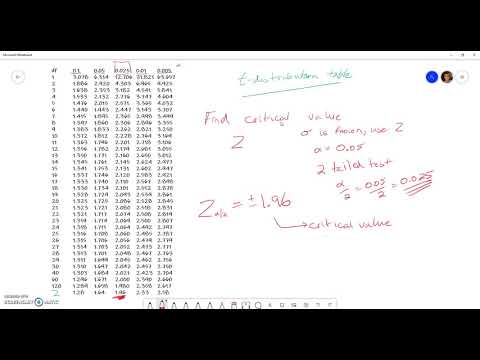 Microsoft Whiteboard
df 0.1 0.05 0.025 0.01 0.005
1 3.078 6.314 12.706 31.821 63.657
2 1.886 2.920 4.303 6.965 9.925
3 1.638 2.353 3.182 4.541 5.841
4 1.533 2.132 2.776 3.747 4.604
5 1.476 2.015 2.571 3.365 4.032
6 1.440 1.943 2.447 3.143 3.707
7 1.415 1.895 2.365 2.998 3.499
8 1.397 1.860 2.306 2.896 3.355
9 1.383 1.833 2.262 2.821 3.250
10 1.372 1.812 2.228 2.764 3.169
11 1.363 1.796 2.201 2.718 3.106
12 1.356 1.782 2.179 2.681 3.055
13 1.350 1.771 2.160 2.650 3.012
14 1.345 1.761 2.145 2.624 2.977
15 1.341 1.753 2.131 2.602 2.947
16 1.337 1.746 2.120 2.583 2.921
17 1.333 1.740 2.110 2.567 2.898
18 1.330 1.734 2.101 2.552 2.878
19 1.328 1.729 2.093 2.539 2.861
20 1.325 1.725 2.086 2.528 2.845
21 1.323 1.721 2.080 2.518 2.831
22 1.321 1.717 2.074 2.508 2.819
23 1.319 1.714 2.069 2.500 2.807
24 1.318 1.711 2.064 2.492 2.797
25 1.316 1.708 2.060 2.485 2.787
26 1.315 1.706 2.056 2.479 2.779
27 1.314 1.703 2.052 2.473 2.771
28 1.313 1.701 2.048 2.467 2.763
29 1.311 1.699 2.045 2.462 2.756
30 1.310 1.697 2.042 2.457 2.750
40 1.303 1.684 2.021 2.423 2.704
60 1.296 1.671 2.000 2.390 2.660
120 1.289 1.658 1.980 2.358 2.617
Z 1.28 1.64 1.96 2.33 2.58
t-distribution table
Find critical value
Z
σ is known, use Z
α = 0.05
2 tailed test
α/2 = 0.05/2 = 0.025
Zα/2 = ±1.96
critical value
RECORDED WITH
SCREENCAST-O-MATIC